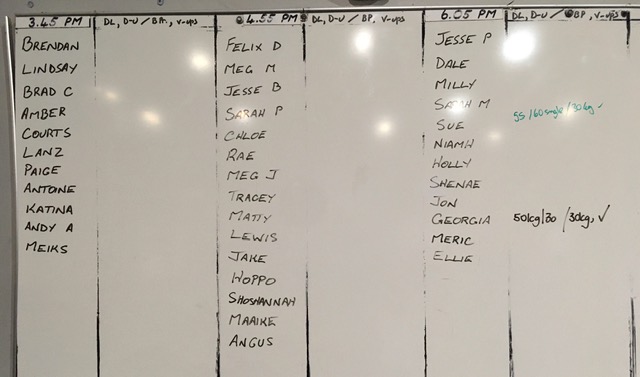 3.45 PM
DL, D-U / BP, V-UPS
BRENDAN
LINDSAY
BRAD C
AMBER
COURTS
LANZ
PAIGE
ANTOINE
KATINA
ANDY A
MEIKS
4.55 PM
DL, D-U / BP, V-UPS
FELIX D
MEG M
JESSE B
SARAH P
CHLOE
RAE
MEG J
TRACEY
MATTY
LEWIS
JAKE
HOPPO
SHOSHANNAH
MAAIKE
ANGUS
6.05 PM
DL, D-U / BP, V-UPS
JESSE P
DALE
MILLY
SARAH M 55 /60single /30kg ✓
SUE
NIAMH
HOLLY
SHENAE
JON
GEORGIA 50kg/30 /30kg, ✓
MERIC
ELLIE